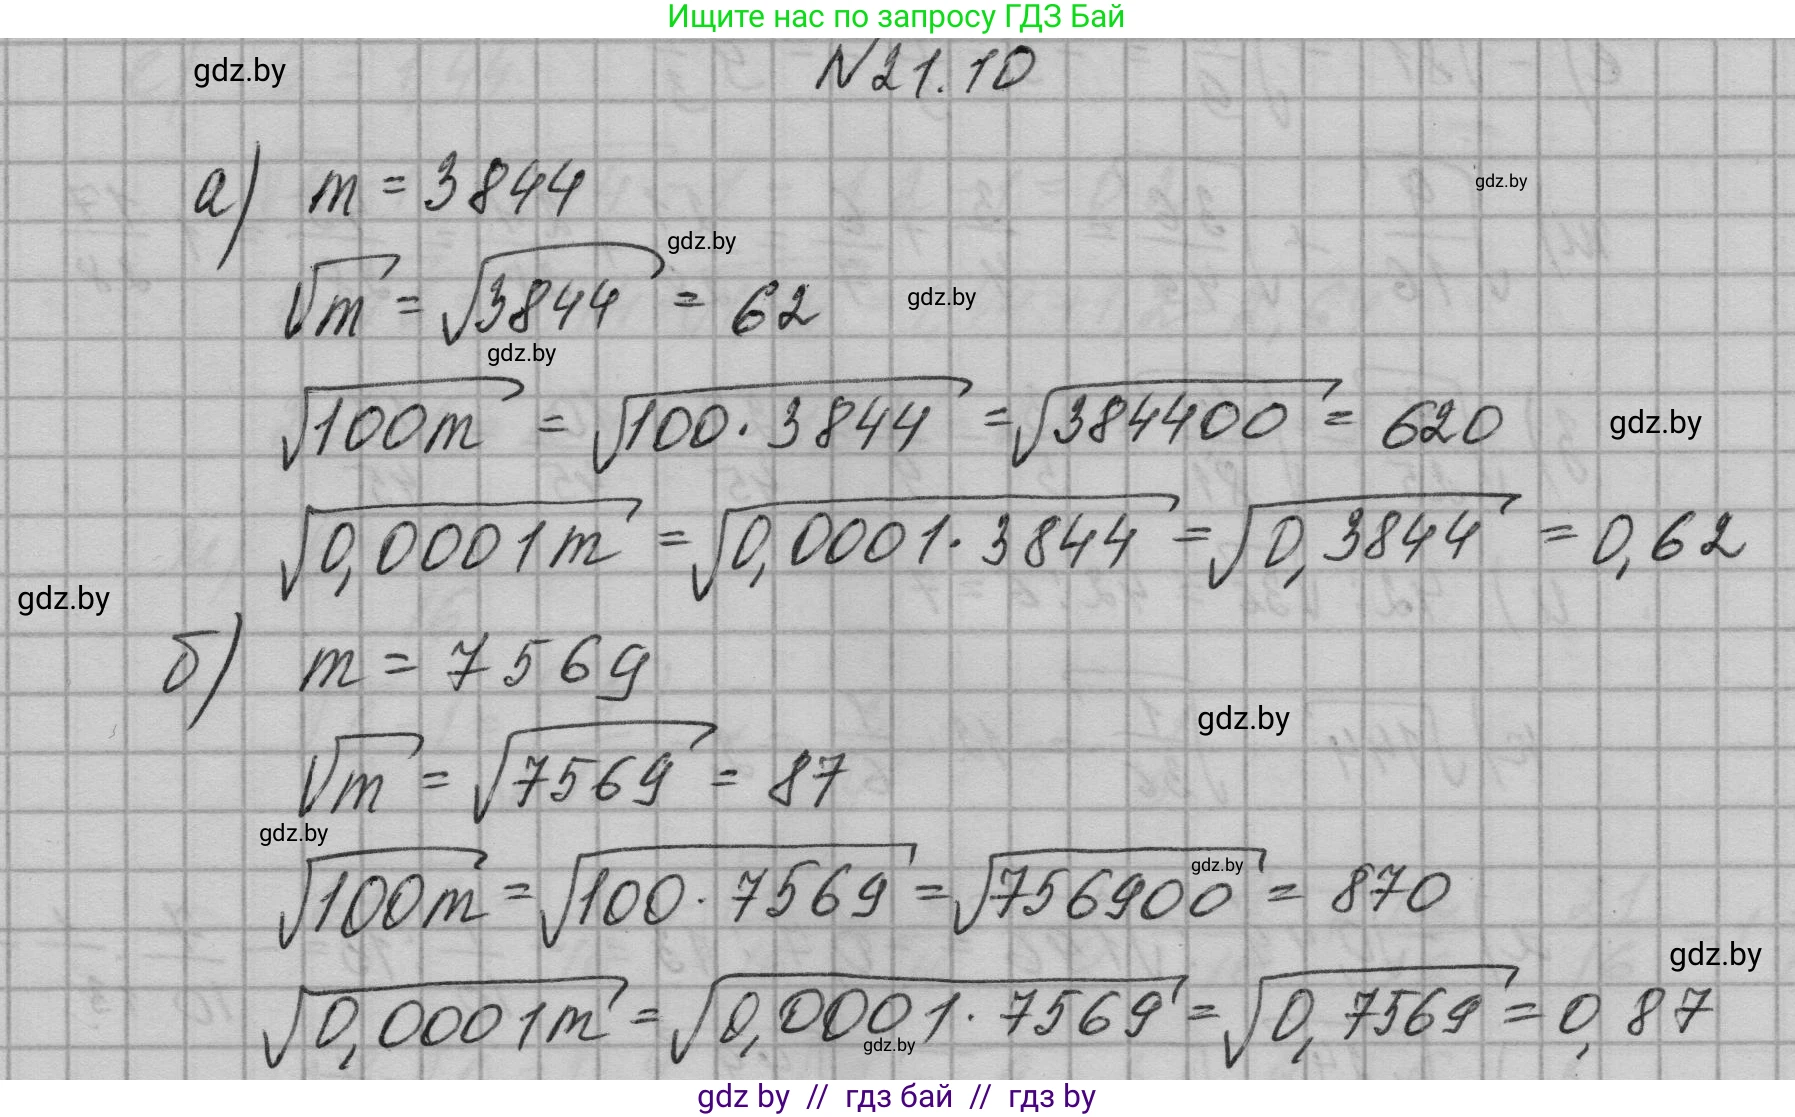 Ищите нас по запросу ГДЗ Бай
gdz.by
№21.10
а) m = 3844
gdz.by
gdz.by
√m = √3844 = 62
gdz.by
gdz.by
√100m = √100·3844 = √384400 = 620
gdz.by
√0,0001m = √0,0001·3844 = √0,3844 = 0,62
gdz.by
б) m = 7569
gdz.by
√m = √7569 = 87
gdz.by
gdz.by
√100m = √100·7569 = √756900 = 870
gdz.by
√0,0001m = √0,0001·7569 = √0,7569 = 0,87
gdz.by
gdz by // гдз бай // гдз by